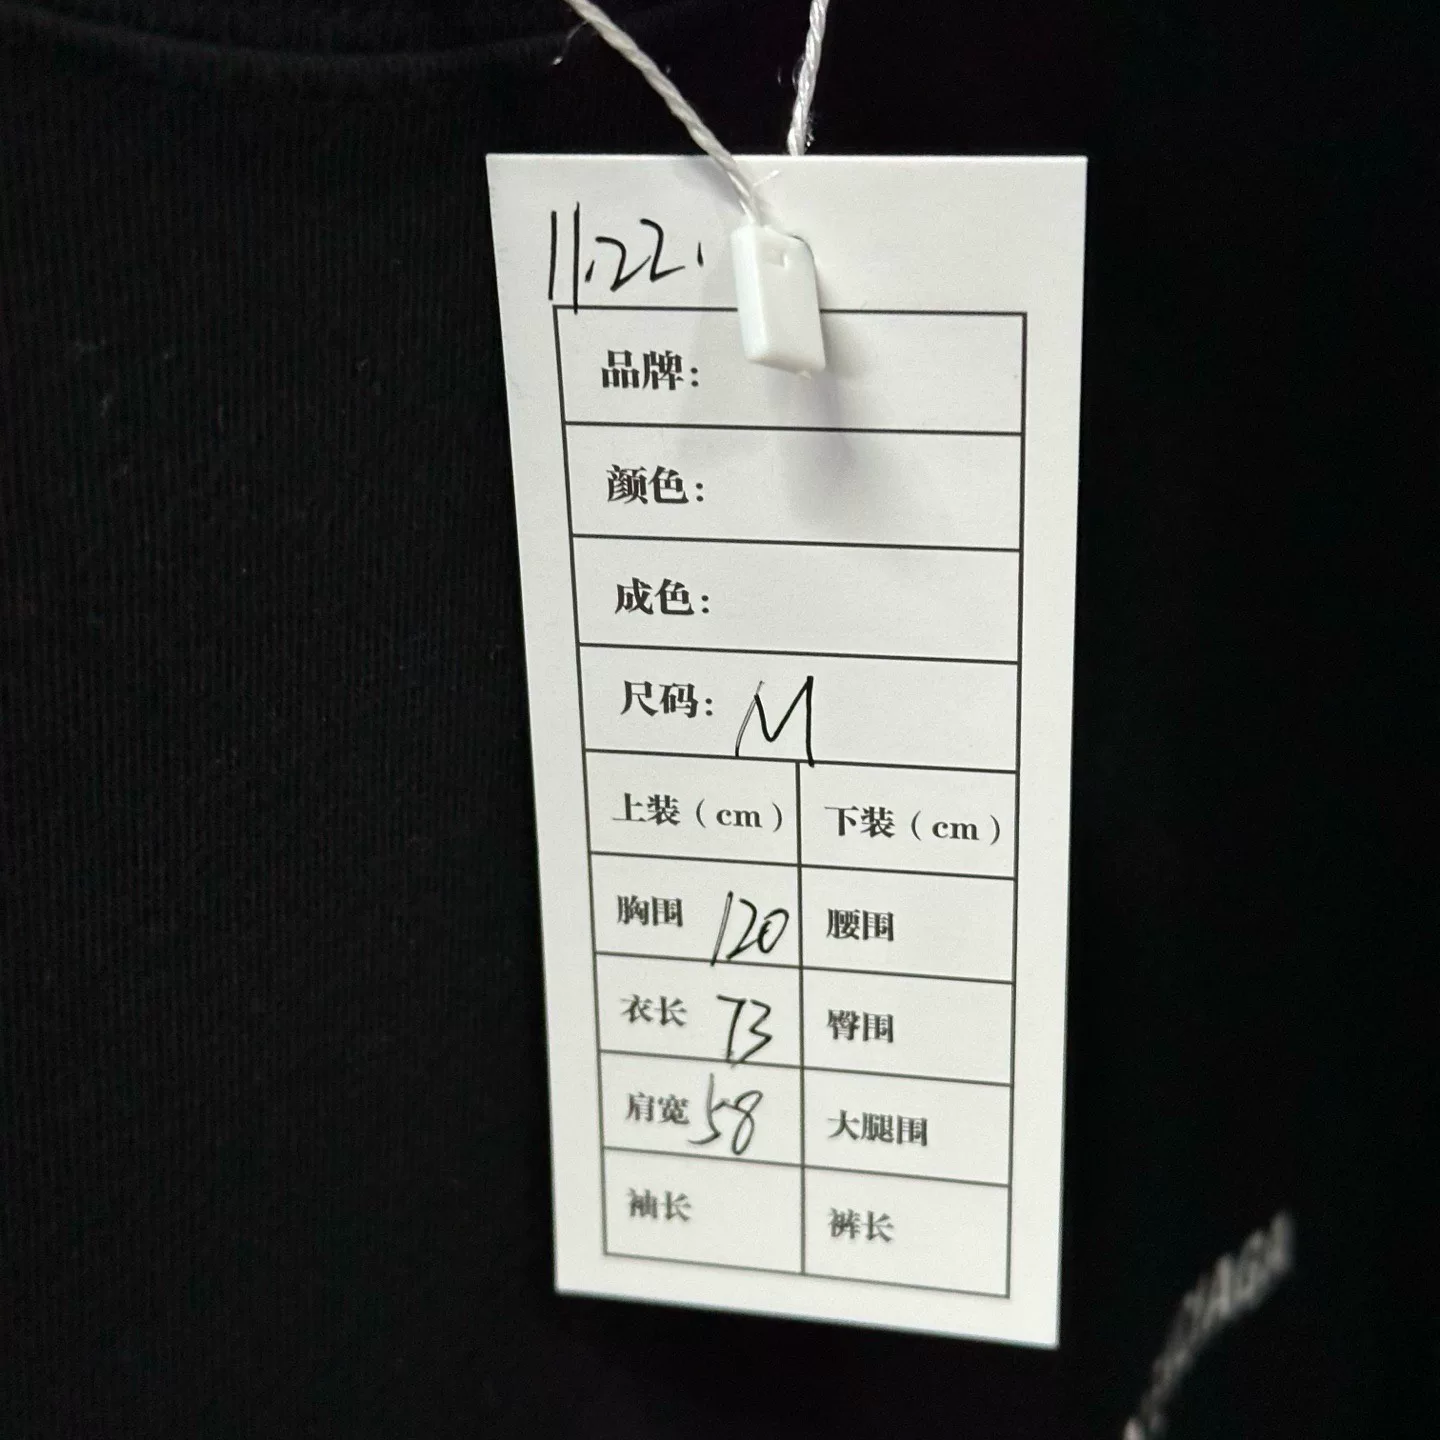 11.22.
品牌:
颜色:
成色:
尺码: M
上装(cm) 下装(cm)
胸围 120 腰围
衣长 73 臀围
肩宽 58 大腿围
袖长 裤长